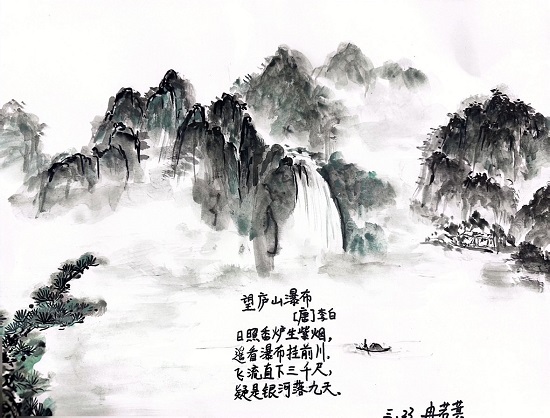 望庐山瀑布
[唐]李白
日照香炉生紫烟,
遥看瀑布挂前川.
飞流直下三千尺,
疑是银河落九天.